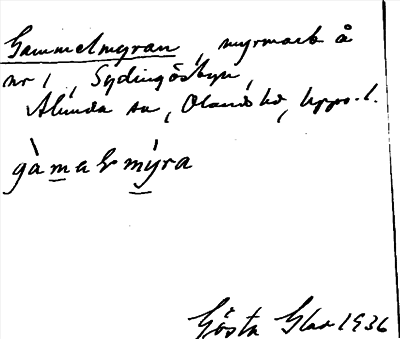 Gammelmyran, myrmark å
nr 1, Sydingösbyn,
Alunda sn, Olands hd, Upps. l.
gàmaLmýra
Gösta Glas 1936